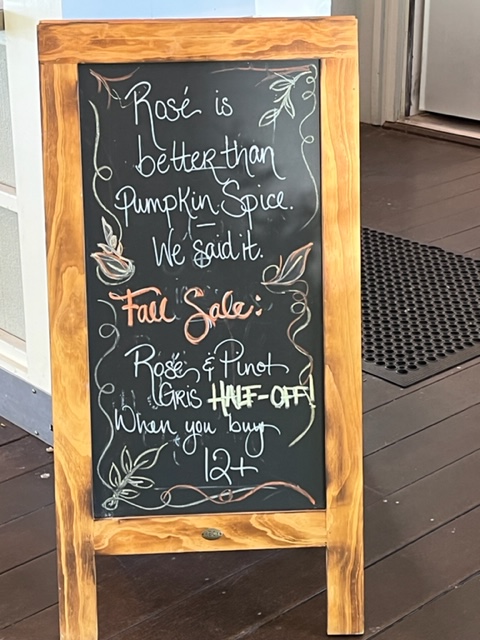 Rosé is
better than
Pumpkin Spice.
We said it.
Fall Sale:
Rosé & Pinot
Gris HALF-OFF!
When you buy
12+